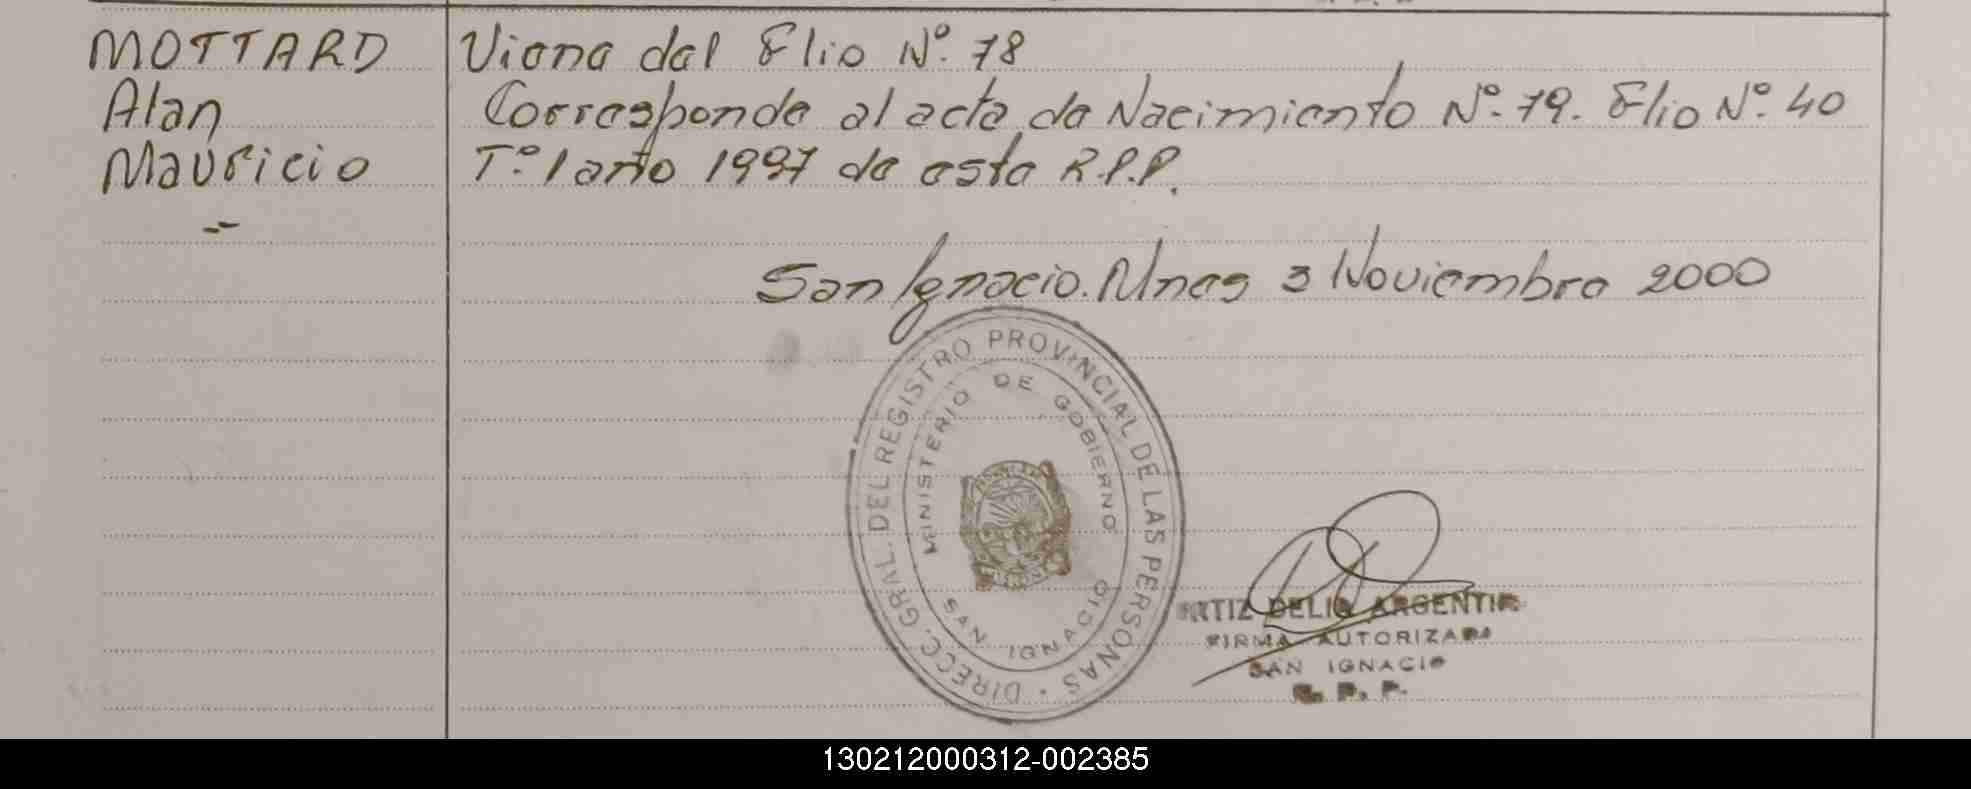 MOTTARD
Alan
Mauricio
Viene del Flio Nº. 78
Corresponde al acta de Nacimiento Nº. 79. Flio Nº. 40
Tº. 1 año 1997 de esta R.P.P.
San Ignacio. Mnes 3 Noviembre 2000
DIREC. GRAL. DEL REGISTRO PROVINCIAL DE LAS PERSONAS
MINISTERIO DE GOBIERNO
SAN IGNACIO
RTIZ DELIA ARGENTIN
FIRMA AUTORIZADA
SAN IGNACIO
R. P. P.
130212000312-002385